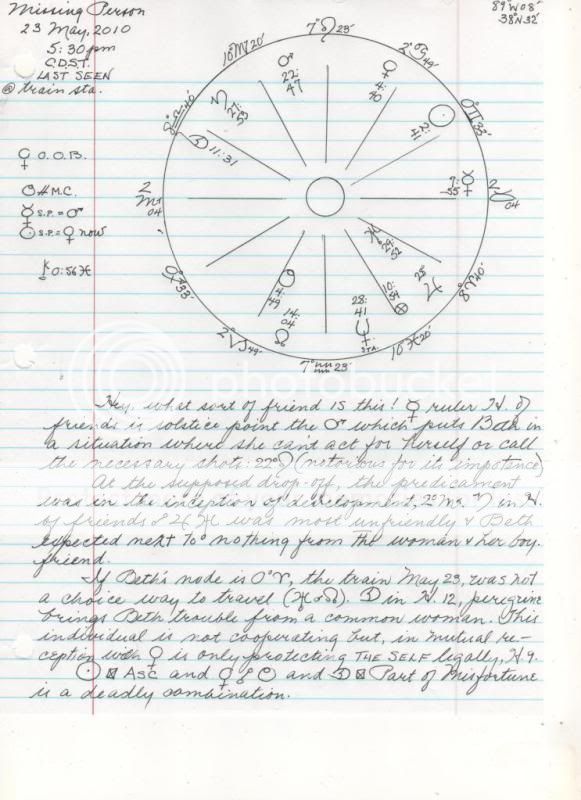 Missing Person
23 May, 2010
5:30pm
C.D.S.T.
LAST SEEN
@ train sta.
89°W08'
38°N32'
7°♌23'
10♍20'
2°♋49'
0°♊33'
2♉04
8°♈40'
10°♓20'
7°♒23'
2°♑49'
0♐33'
2♏04
8♎40'
♂ 22:47
♀ 4:40
☿ 9:55
☽ 11:31
28:41
STA.
10:54 ⊗
14:04
♀ O.O.B.
M.C.
☿ S.P. = ♂
☉ S.P. = ♀ now
⚷ 0:56 ♓
photobucket
Hey, what sort of friend is this! ☿ ruler H. of
friends is solstice point the ♂ which puts Beth in
a situation where she can't act for herself or call
the necessary shots: 22°♌ (notorious for its impotence)
At the supposed drop-off, the predicament
was in the inception of development, 2° Ms. ♄ in H.
of friends ☍ ♃ ♓ was most unfriendly & Beth
expected next to nothing from the woman & her boy-
friend.
If Beth's node is 0°♈, the train May 23, was not
a choice way to travel (♓ ☌ ♌). ☽ in H. 12, peregrine
brings Beth trouble from a common woman. This
individual is not cooperating but, in mutual re-
ception with ♀ is only protecting THE SELF legally, H 9.
☉ ⚻ ASC and ♀ ☍ and ☽ ⚻ Part of Misfortune
is a deadly combination.